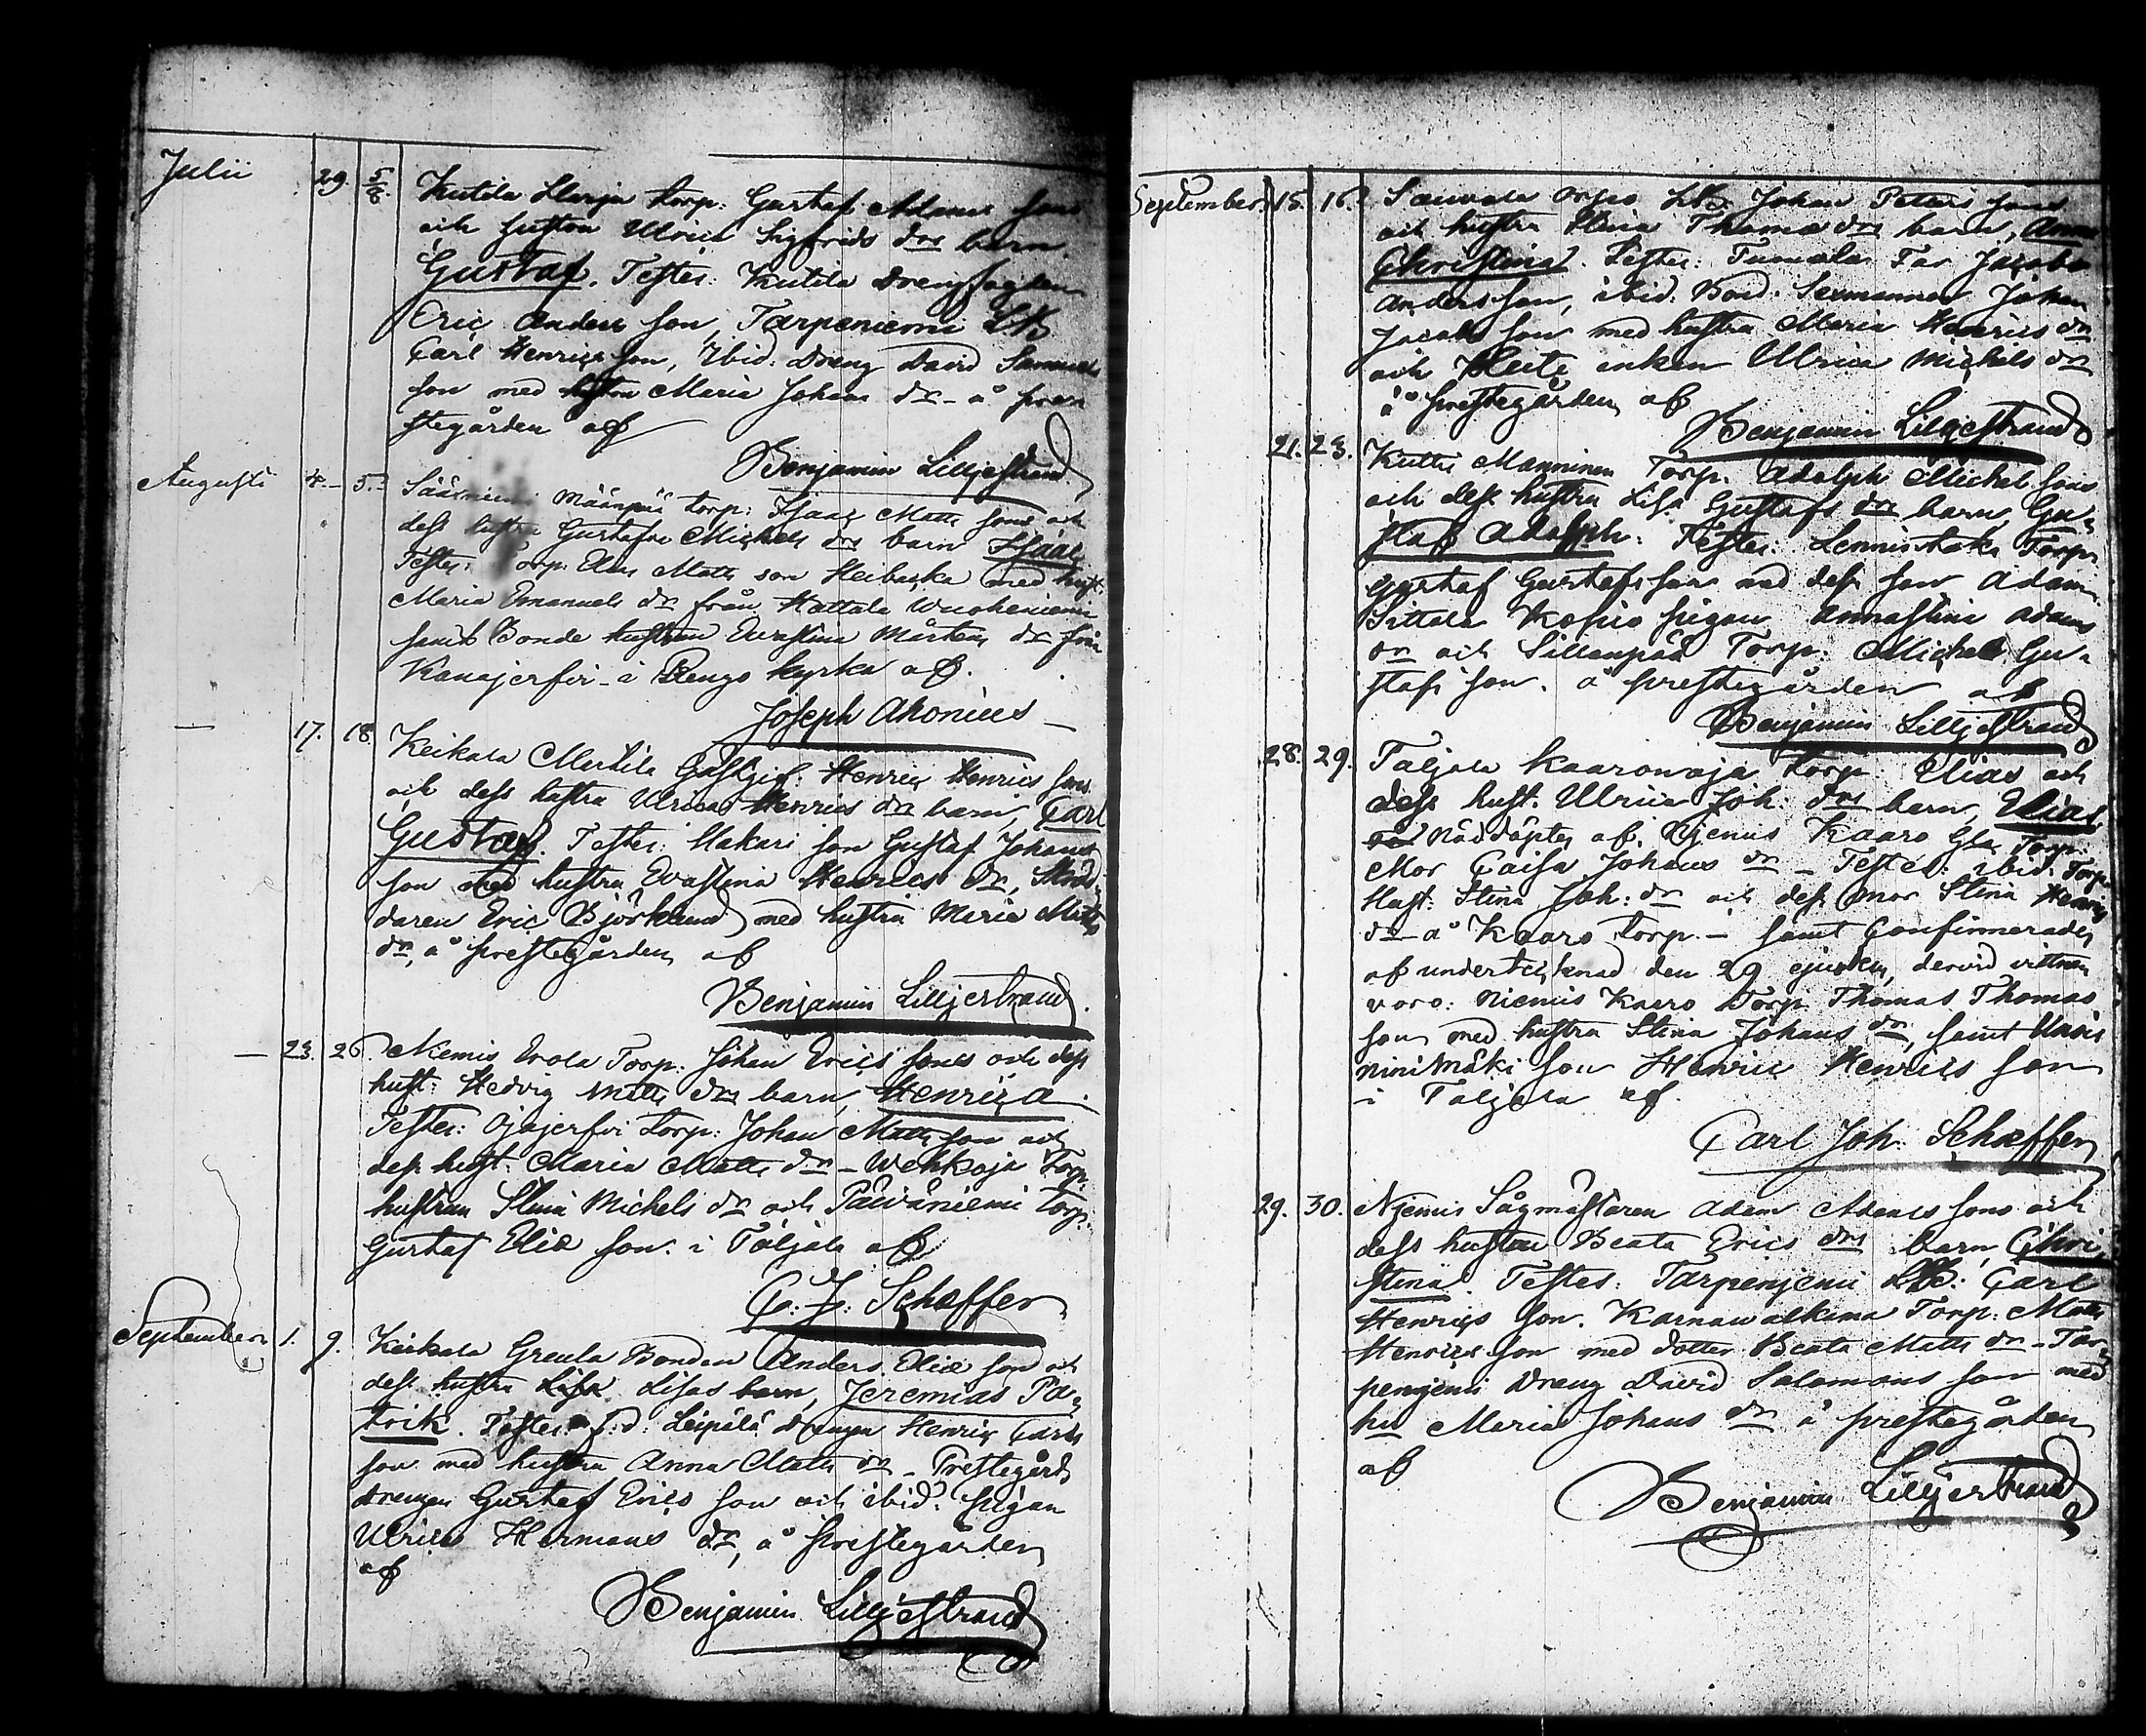 Julii 29. 5/8. Kutila Harja torp: Gustaf Adams sons
och hustrun Ulrica Sigfrids drs barn
Gustaf. Testes: Kutila Dreng
Eric Anders son, Tarpeniemi
Carl Henrics son, Ibid: Dreng David Samuels
son med hustru Maria Johans dr - å pre-
stegården af
Benjamin Lilljestrand
Augusti 4. 5. Säärniemi Määnpää torp: Isaac Matts sons och
dess hustru Gustafva Michels drs barn Isaac
Testes: Torp. Elias Matts son Heibacka med hust.
Maria Emanuels dr från Hattala Wuoheniemi
samt Bonde hustrun Evastina Mårtens dr från
Kanajerfvi - i Rengo kyrka af.
Joseph Ahonius
— 17. 18. Keikala Mertila Gästgif. Henric Henrics sons
och dess hustru Ulrica Henrics drs barn, Carl
Gustaf. Testes: Makari son Gustaf Johans
son med hustru Evastina Henrics dr,
daren Eric Björklund med hustru Maria Matts
dr, å prestegården af
Benjamin Lilljestrand.
— 23. 26. Nemis Erola Torp. Johan Erics sons och dess
hust: Hedvig Matts drs barn, Henrica.
Testes: Ojajerfvi torp: Johan Matts son och
dess hust: Maria Matts dr - Wehkoja Torp.
hustrun Stina Michels dr och Päiväniemi torp.
Gustaf Eliæ son. i Täljala af
C. J. Schæffer
September 1. 9. Keikala Greula Bonden Anders Eliæ son och
dess hustru Lisas barn, Jeremias Pa-
trik. Testes f:d: Leipälä drengen Henric Carls
son med hustru Anna Matts dr - Prestegårds
drengen Gustaf Erics son och ibid: pigan
Ulrica Hermans dr, å prestegården
af
Benjamin Lilljestrand
September 15. 16. Sauvala Johan Peters sons
och hustru Stina Thomæ drs barn, Anna
Christina. Testes: Tumala Far Jacob
Anders son, ibid. Bond. Sexmannen Johan
Jacobs son med hustru Maria Henrics dr
och enkan Ulrica Michels dr
å prestegården af
Benjamin Lilljestrand
21. 23. Kuttis Manninen Torp. Adolph Michel sons
och dess hustru Lisa Gustafs drs barn Gu-
staf Adolph. Testes: Torp.
Gustaf Gustafs son med dess son Adam
Sittala Kopio pigan Annastina Adams
dr och Sillanpää Torp: Michel Gu-
stafs son. å prestegården af
Benjamin Lilljestrand
28. 29. Täljala Kaaronoja torp. Elias och
dess hust. Ulrica Joh: drs barn, Elias
Nöddöptes af Njemis Kaaro Gla Torp:
Mor Caisa Johans dr - Testes: ibid: Torp
Hust: Stina Joh: dr och dess mor Stina Henrics
dr å Kaaro torp. - samt Confirmerades
af undertecknad den 29 ejusdem, dervid vittnen
voro: Niemis Kaaro Torp. Thomas Thomas
son med hustru Stina Johans dr, samt
mäki son Henric Henrics son
i Täljala af.
Carl Joh: Schæffer
29. 30. Njemis Sågmästaren Adam Adams sons och
dess hustru Beata Erics drs barn, Chri-
stina. Testes: Tarpenjemi Carl
Henrics son. Karnawalkama Torp: Matts
Henrics son med dotter Beata Matts dr - Tar-
penjemi Dreng David Salomons son med
hu Maria Johans dr å prestegården
af
Benjamin Lilljestrand